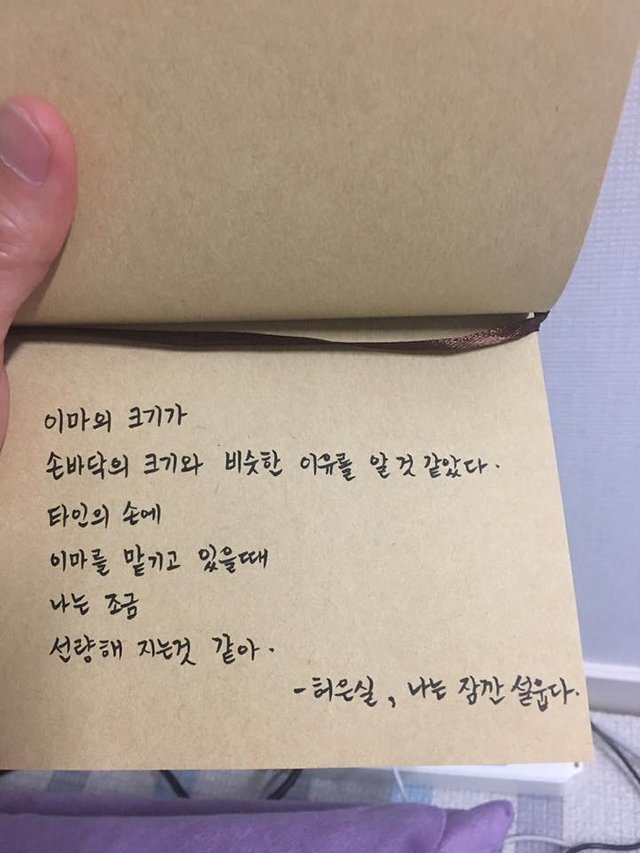 이마의 크기가
손바닥의 크기와 비슷한 이유를 알 것 같았다.
타인의 손에
이마를 맡기고 있을때
나는 조금
선량해 지는것 같아.
-허은실, 나는 잠깐 설웁다.